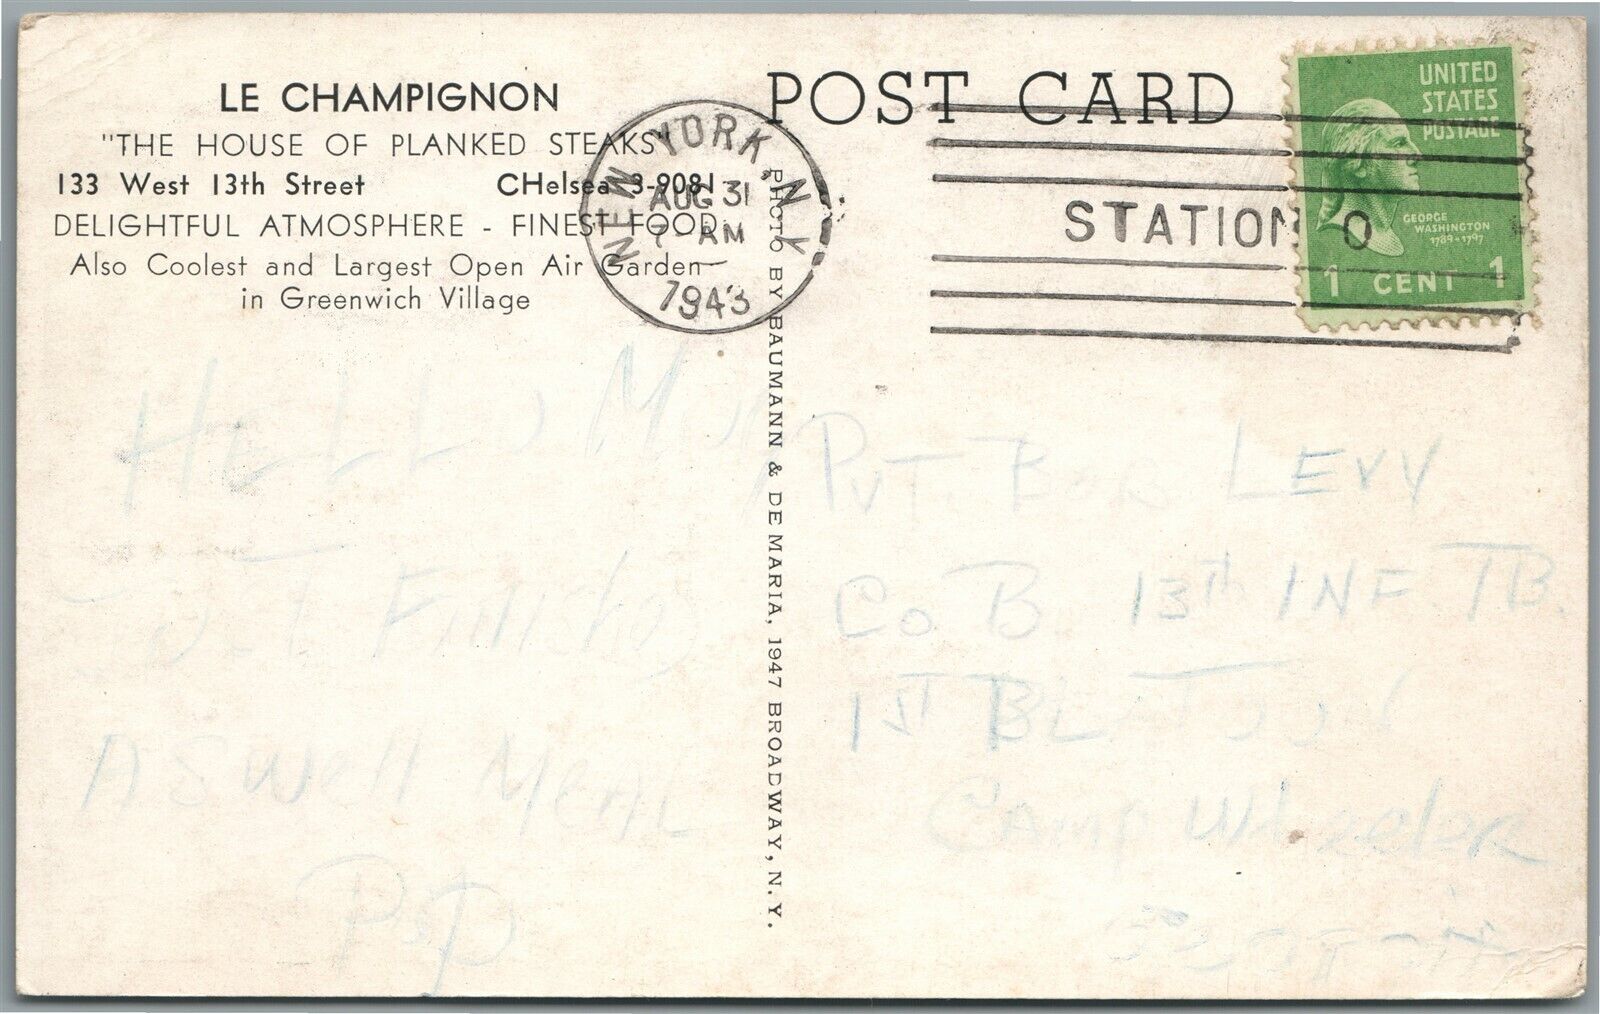 LE CHAMPIGNON
"THE HOUSE OF PLANKED STEAKS"
133 West 13th Street CHelsea 3-9081
DELIGHTFUL ATMOSPHERE - FINEST FOOD
Also Coolest and Largest Open Air Garden
in Greenwich Village
POST CARD
NEW YORK, N.Y.
AUG 31
7-AM
1943
STATION O
UNITED
STATES
POSTAGE
GEORGE
WASHINGTON
1789-1797
1 CENT 1
PHOTO BY BAUMANN & DE MARIA, 1947 BROADWAY, N.Y.
HELLO
A SWell MeAL
Pop
PVT. LEVY
Co B 13th INF TB.
CAmp WHeeleR